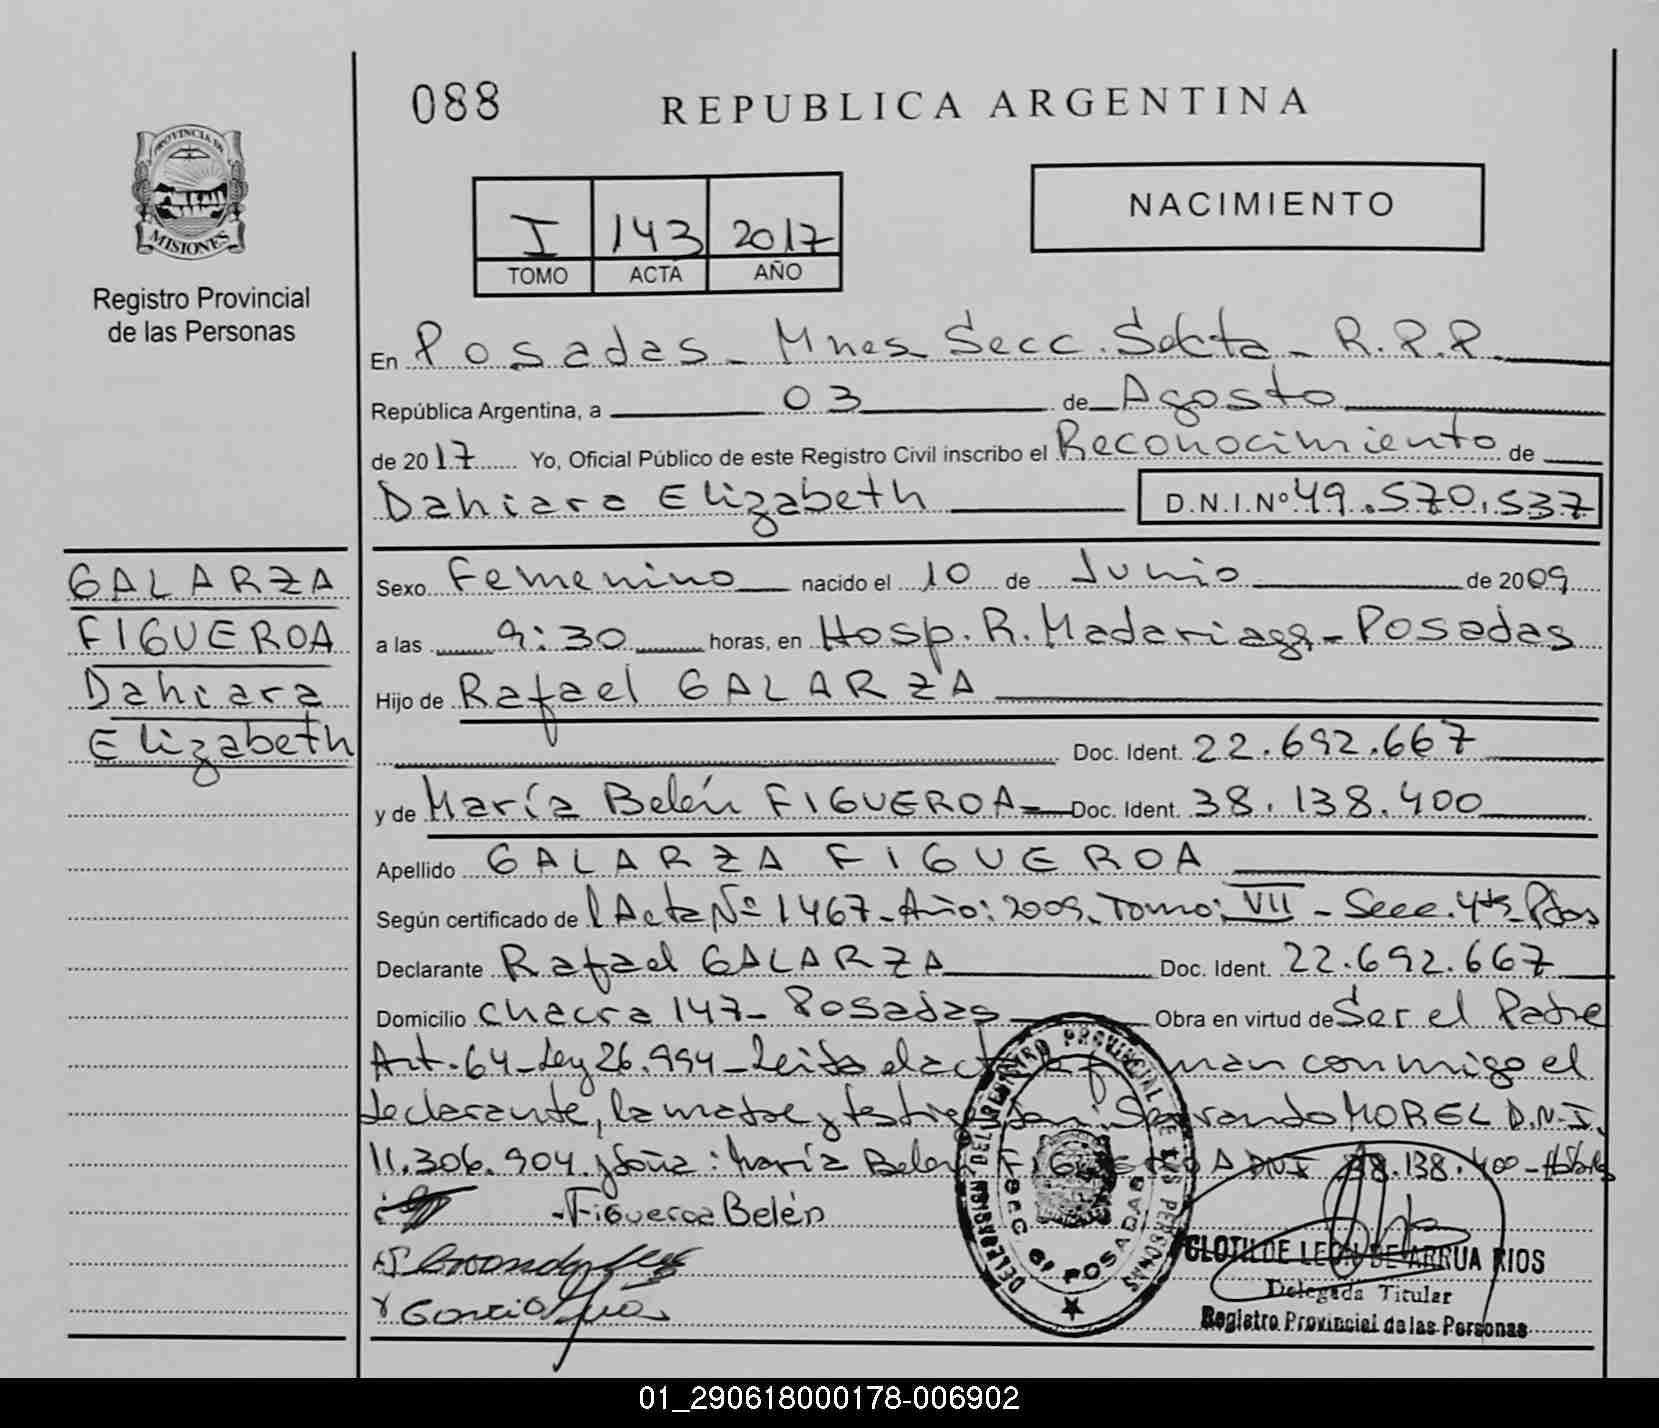 088
REPUBLICA ARGENTINA
PROVINCIA DE
MISIONES
Registro Provincial
de las Personas
NACIMIENTO
I 143 2017
TOMO ACTA AÑO
En Posadas - Mnes Secc. Sexta - R.P.P.
República Argentina, a 03 de Agosto
de 2017 Yo, Oficial Público de este Registro Civil inscribo el Reconocimiento de
Dahiara Elizabeth D.N.I.Nº 49.570.537
GALARZA
FIGUEROA
Dahiara
Elizabeth
Sexo Femenino nacido el 10 de Junio de 2009
a las 9:30 horas, en Hosp. R. Madariaga - Posadas
Hijo de Rafael GALARZA
Doc. Ident. 22.692.667
y de María Belén FIGUEROA Doc. Ident. 38.138.400
Apellido GALARZA FIGUEROA
Según certificado de l Acta Nº 1467 - Año: 2009 - Tomo: VII - Secc. 4ta - Pdas
Declarante Rafael GALARZA Doc. Ident. 22.692.667
Domicilio chacra 147 - Posadas Obra en virtud de Ser el Padre
Art. 64 - Ley 26.994 - Leida el acta firman conmigo el
declarante, la madre y testigo Don: MOREL D.N.I.
11.306.904 y doña: María Belen FIGUEROA DNI 38.138.400 -
- Figueroa Belén
DELEGACION DEL REGISTRO PROVINCIAL DE LAS PERSONAS
SECC 6ª POSADAS
CLOTILDE LEON DE ARRUA RIOS
Delegada Titular
Registro Provincial de las Personas
01_290618000178-006902